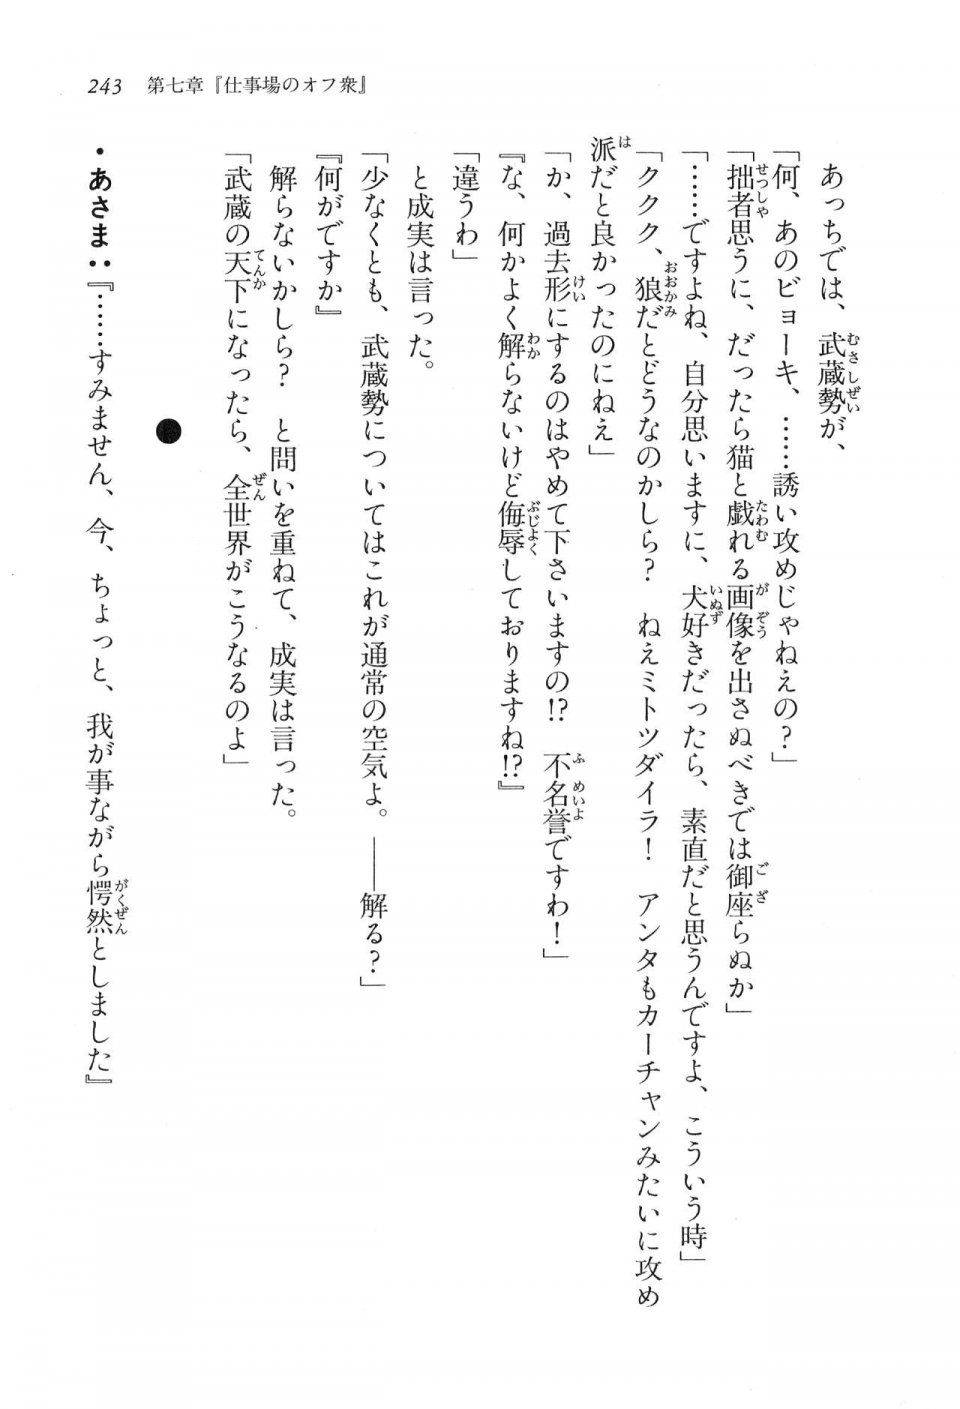 243　第七章『仕事場のオフ衆』
あっちでは、武蔵勢が、
「何、あのビョーキ、……誘い攻めじゃねえの？」
「拙者思うに、だったら猫と戯れる画像を出さぬべきでは御座らぬか」
「……ですよね、自分思いますに、犬好きだったら、素直だと思うんですよ、こういう時」
「ククク、狼だとどうなのかしら？　ねえミトツダイラ！　アンタもカーチャンみたいに攻め
派だと良かったのにねえ」
「か、過去形にするのはやめて下さいますの!?　不名誉ですわ！」
『な、何かよく解らないけど侮辱しておりますね!?』
「違うわ」
と成実は言った。
「少なくとも、武蔵勢についてはこれが通常の空気よ。――解る？」
『何がですか』
解らないかしら？　と問いを重ねて、成実は言った。
「武蔵の天下になったら、全世界がこうなるのよ」
●
・あさま：『……すみません、今、ちょっと、我が事ながら愕然としました』